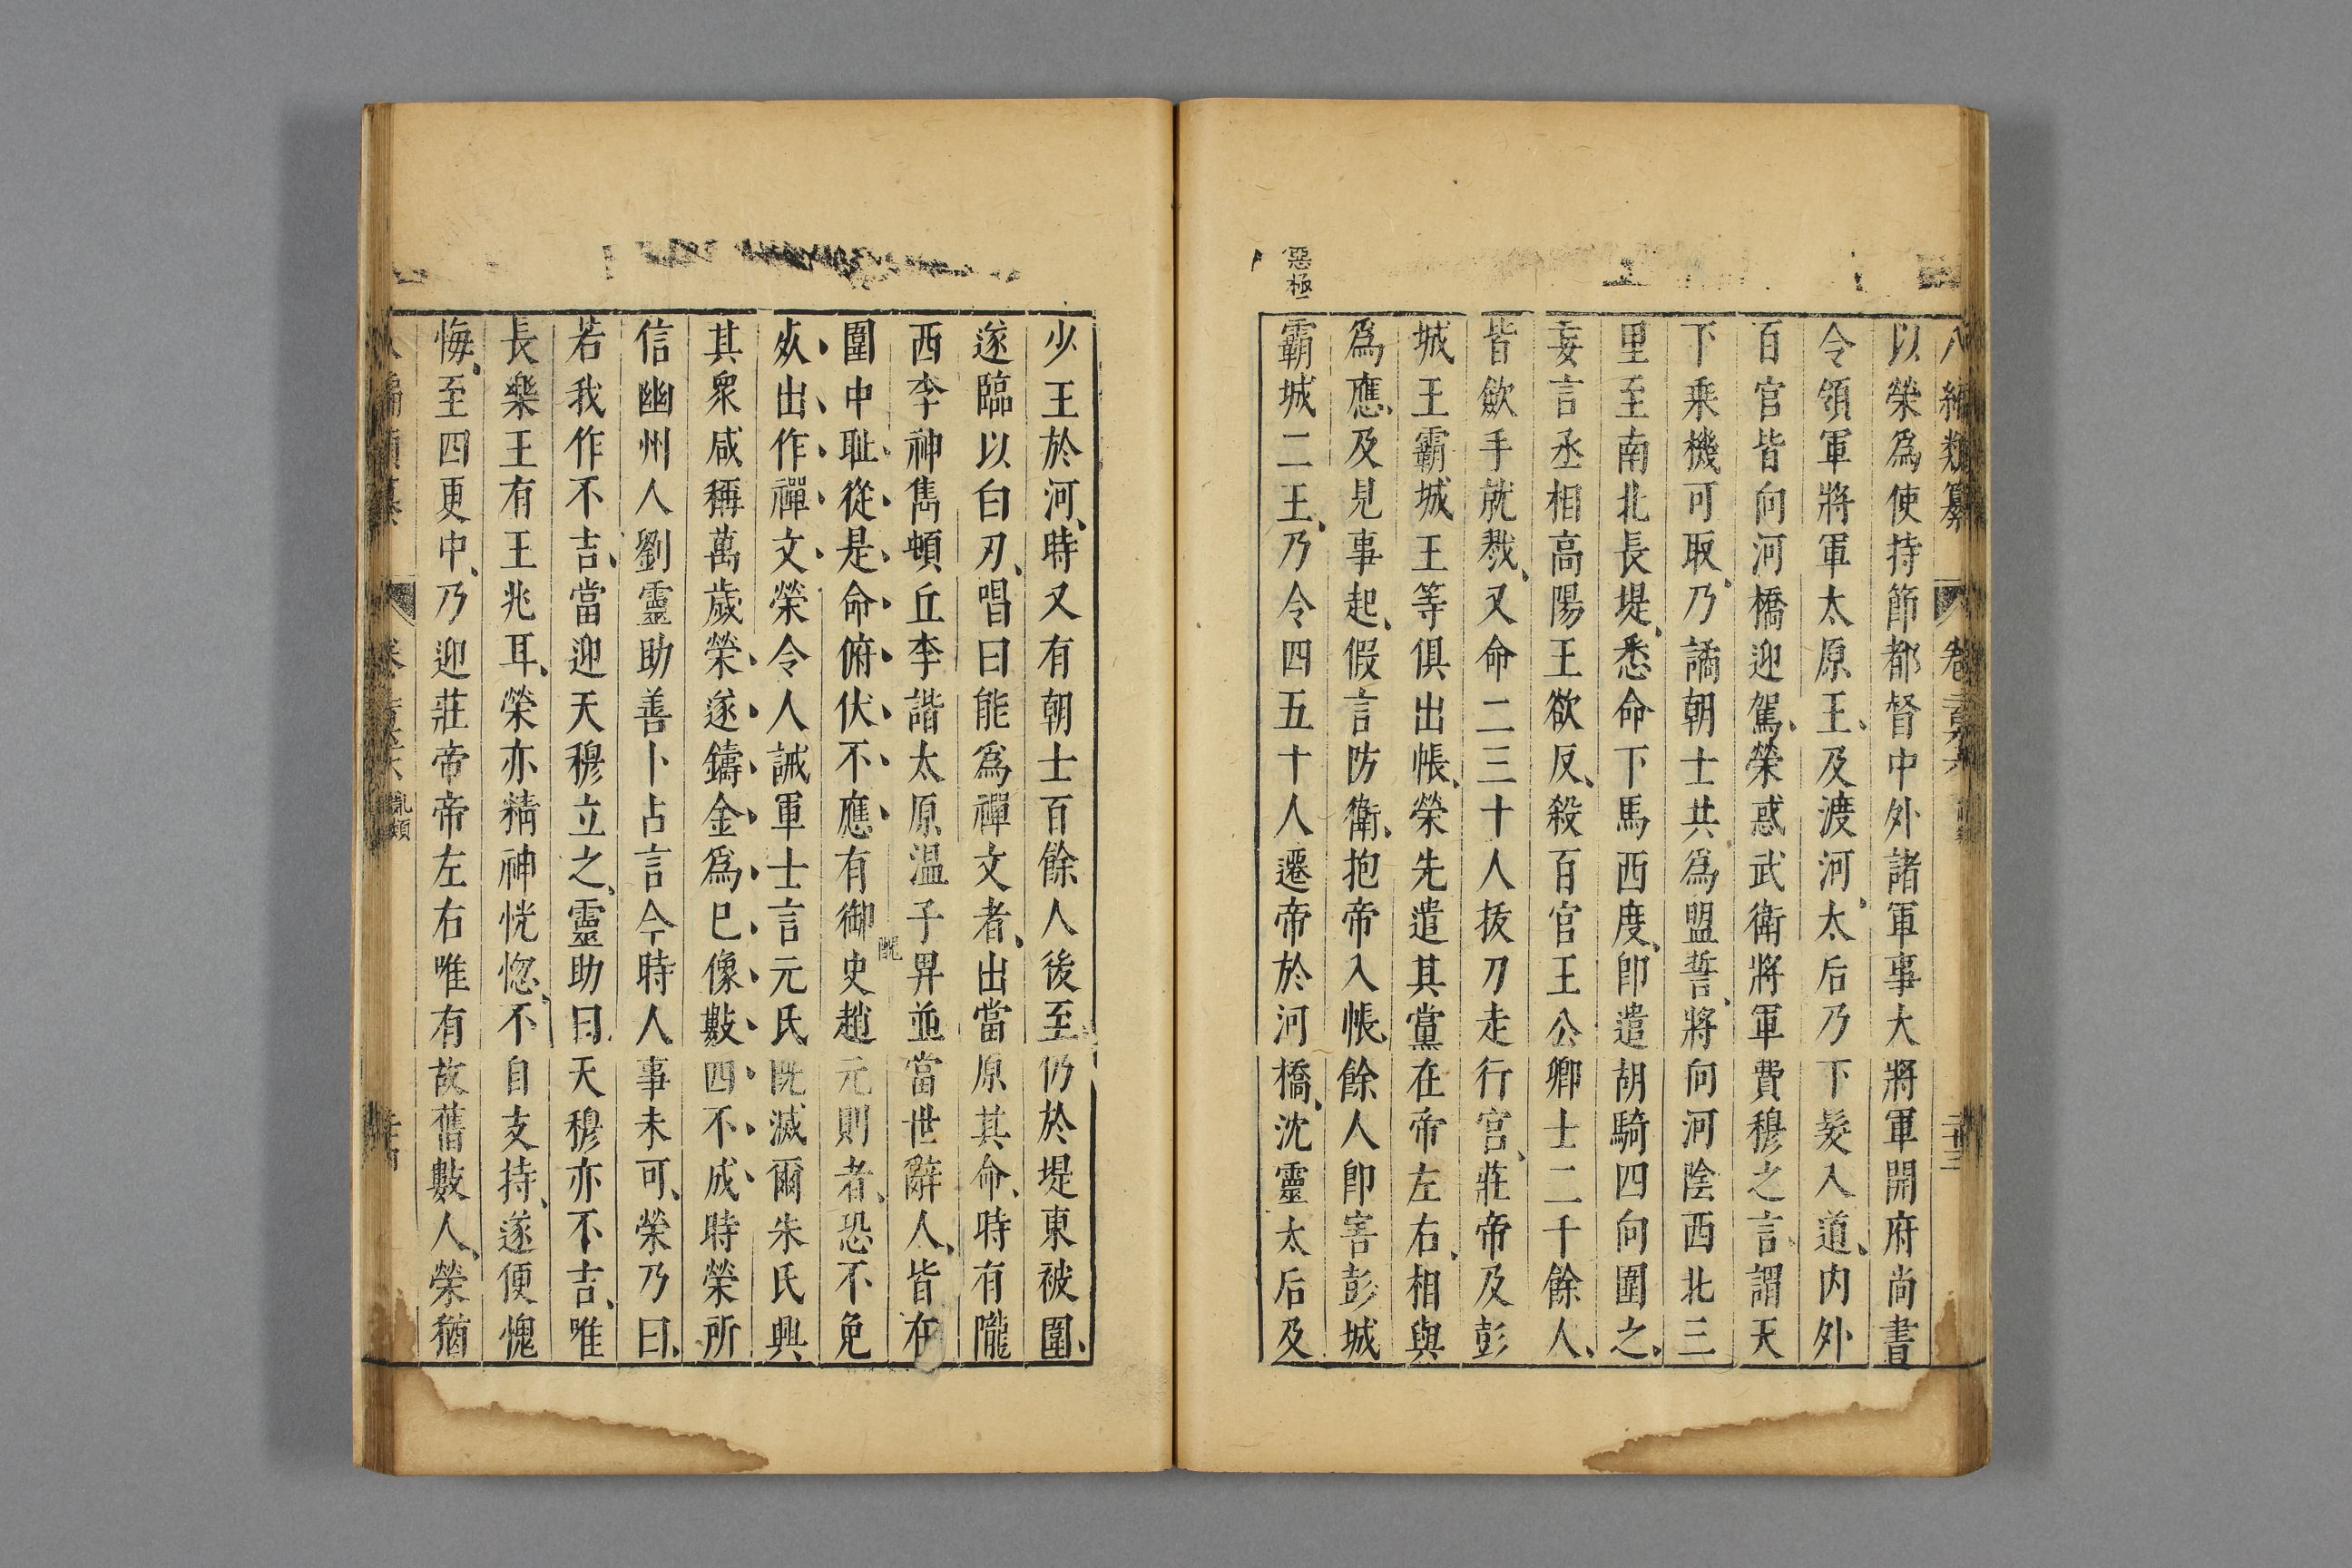 八編類纂
以榮爲使持節都督中外諸軍事大將軍開府尚書
令領軍將軍太原王及渡河太后乃下髮入道內外
百官皆向河橋迎駕榮惑武衛將軍費穆之言謂天
下乘機可取乃譎朝士共爲盟誓將向河陰西北三
里至南北長堤悉命下馬西度即遣胡騎四向圍之
妄言丞相高陽王欲反殺百官王公卿士二千餘人
皆歛手就戮又命二三十人拔刀走行宮莊帝及彭
城王霸城王等俱出帳榮先遣其黨在帝左右相與
爲應及見事起假言防衛抱帝入帳餘人即害彭城
惡極
霸城二王乃令四五十人遷帝於河橋沈靈太后及
少王於河時又有朝士百餘人後至仍於堤東被圍
遂臨以白刃唱曰能爲禪文者出當原其命時有隴
西李神雋頓丘李諧太原温子昇並當世辭人皆在
圍中耻從是命俯伏不應有御史趙元則者恐不免
㚈出作禪文榮令人誡軍士言元氏既滅爾朱氏興
其衆咸稱萬歲榮遂鑄金爲巳像數四不成時榮所
信幽州人劉靈助善卜占言今時人事未可榮乃曰
若我作不吉當迎天穆立之靈助曰天穆亦不吉唯
長樂王有王兆耳榮亦精神恍惚不自支持遂便愧
悔至四更中乃迎莊帝帝左右唯有故舊數人榮猶